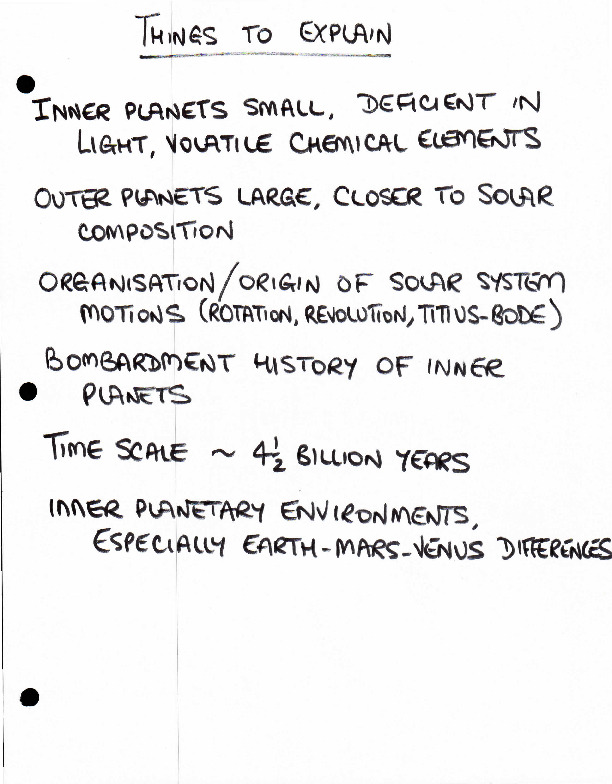 THINGS TO EXPLAIN
INNER PLANETS SMALL, DEFICIENT IN
LIGHT, VOLATILE CHEMICAL ELEMENTS
OUTER PLANETS LARGE, CLOSER TO SOLAR
COMPOSITION
ORGANISATION/ORIGIN OF SOLAR SYSTEM
MOTIONS (ROTATION, REVOLUTION, TITIUS-BODE)
BOMBARDMENT HISTORY OF INNER
PLANETS
TIME SCALE ~ 4½ BILLION YEARS
INNER PLANETARY ENVIRONMENTS,
ESPECIALLY EARTH-MARS-VENUS DIFFERENCES